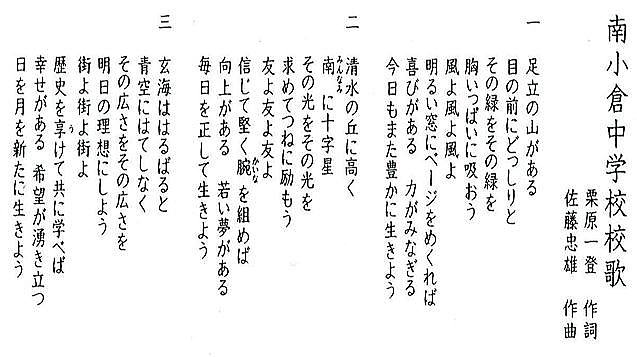 南小倉中学校校歌
栗原一登 作詞
佐藤忠雄 作曲
一
足立の山がある
目の前にどっしりと
その緑をその緑を
胸いっぱいに吸おう
風よ風よ風よ
明るい窓にページをめくれば
喜びがある 力がみなぎる
今日もまた豊かに生きよう
二
清水の丘に高く
南に十字星
みんなみ
その光をその光を
求めてつねに励もう
友よ友よ友よ
信じて堅く腕を組めば
かいな
向上がある 若い夢がある
毎日を正して生きよう
三
玄海ははるばると
青空にはてしなく
その広さをその広さを
明日の理想にしよう
街よ街よ街よ
歴史を享けて共に学べば
う
幸せがある 希望が湧き立つ
日を月を新たに生きよう